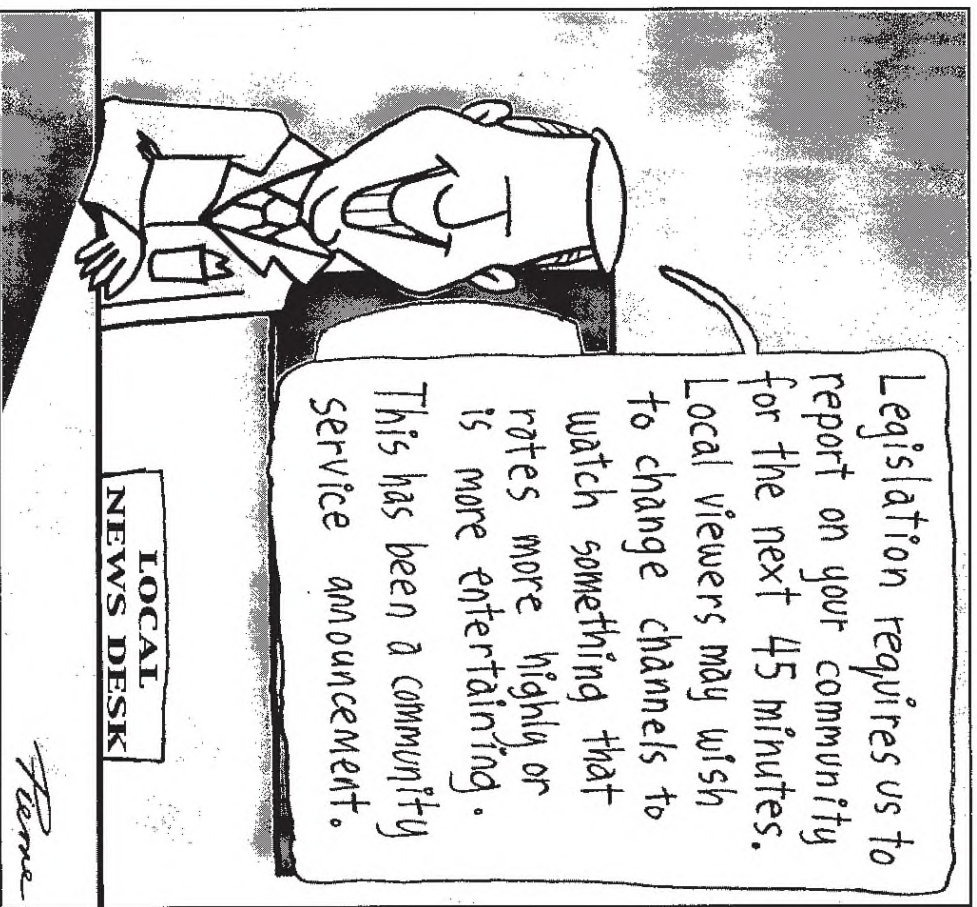 Legislation requires us to
report on your community
for the next 45 minutes.
Local viewers may wish
to change channels to
watch something that
rates more highly or
is more entertaining.
This has been a community
service announcement.
LOCAL
NEWS DESK